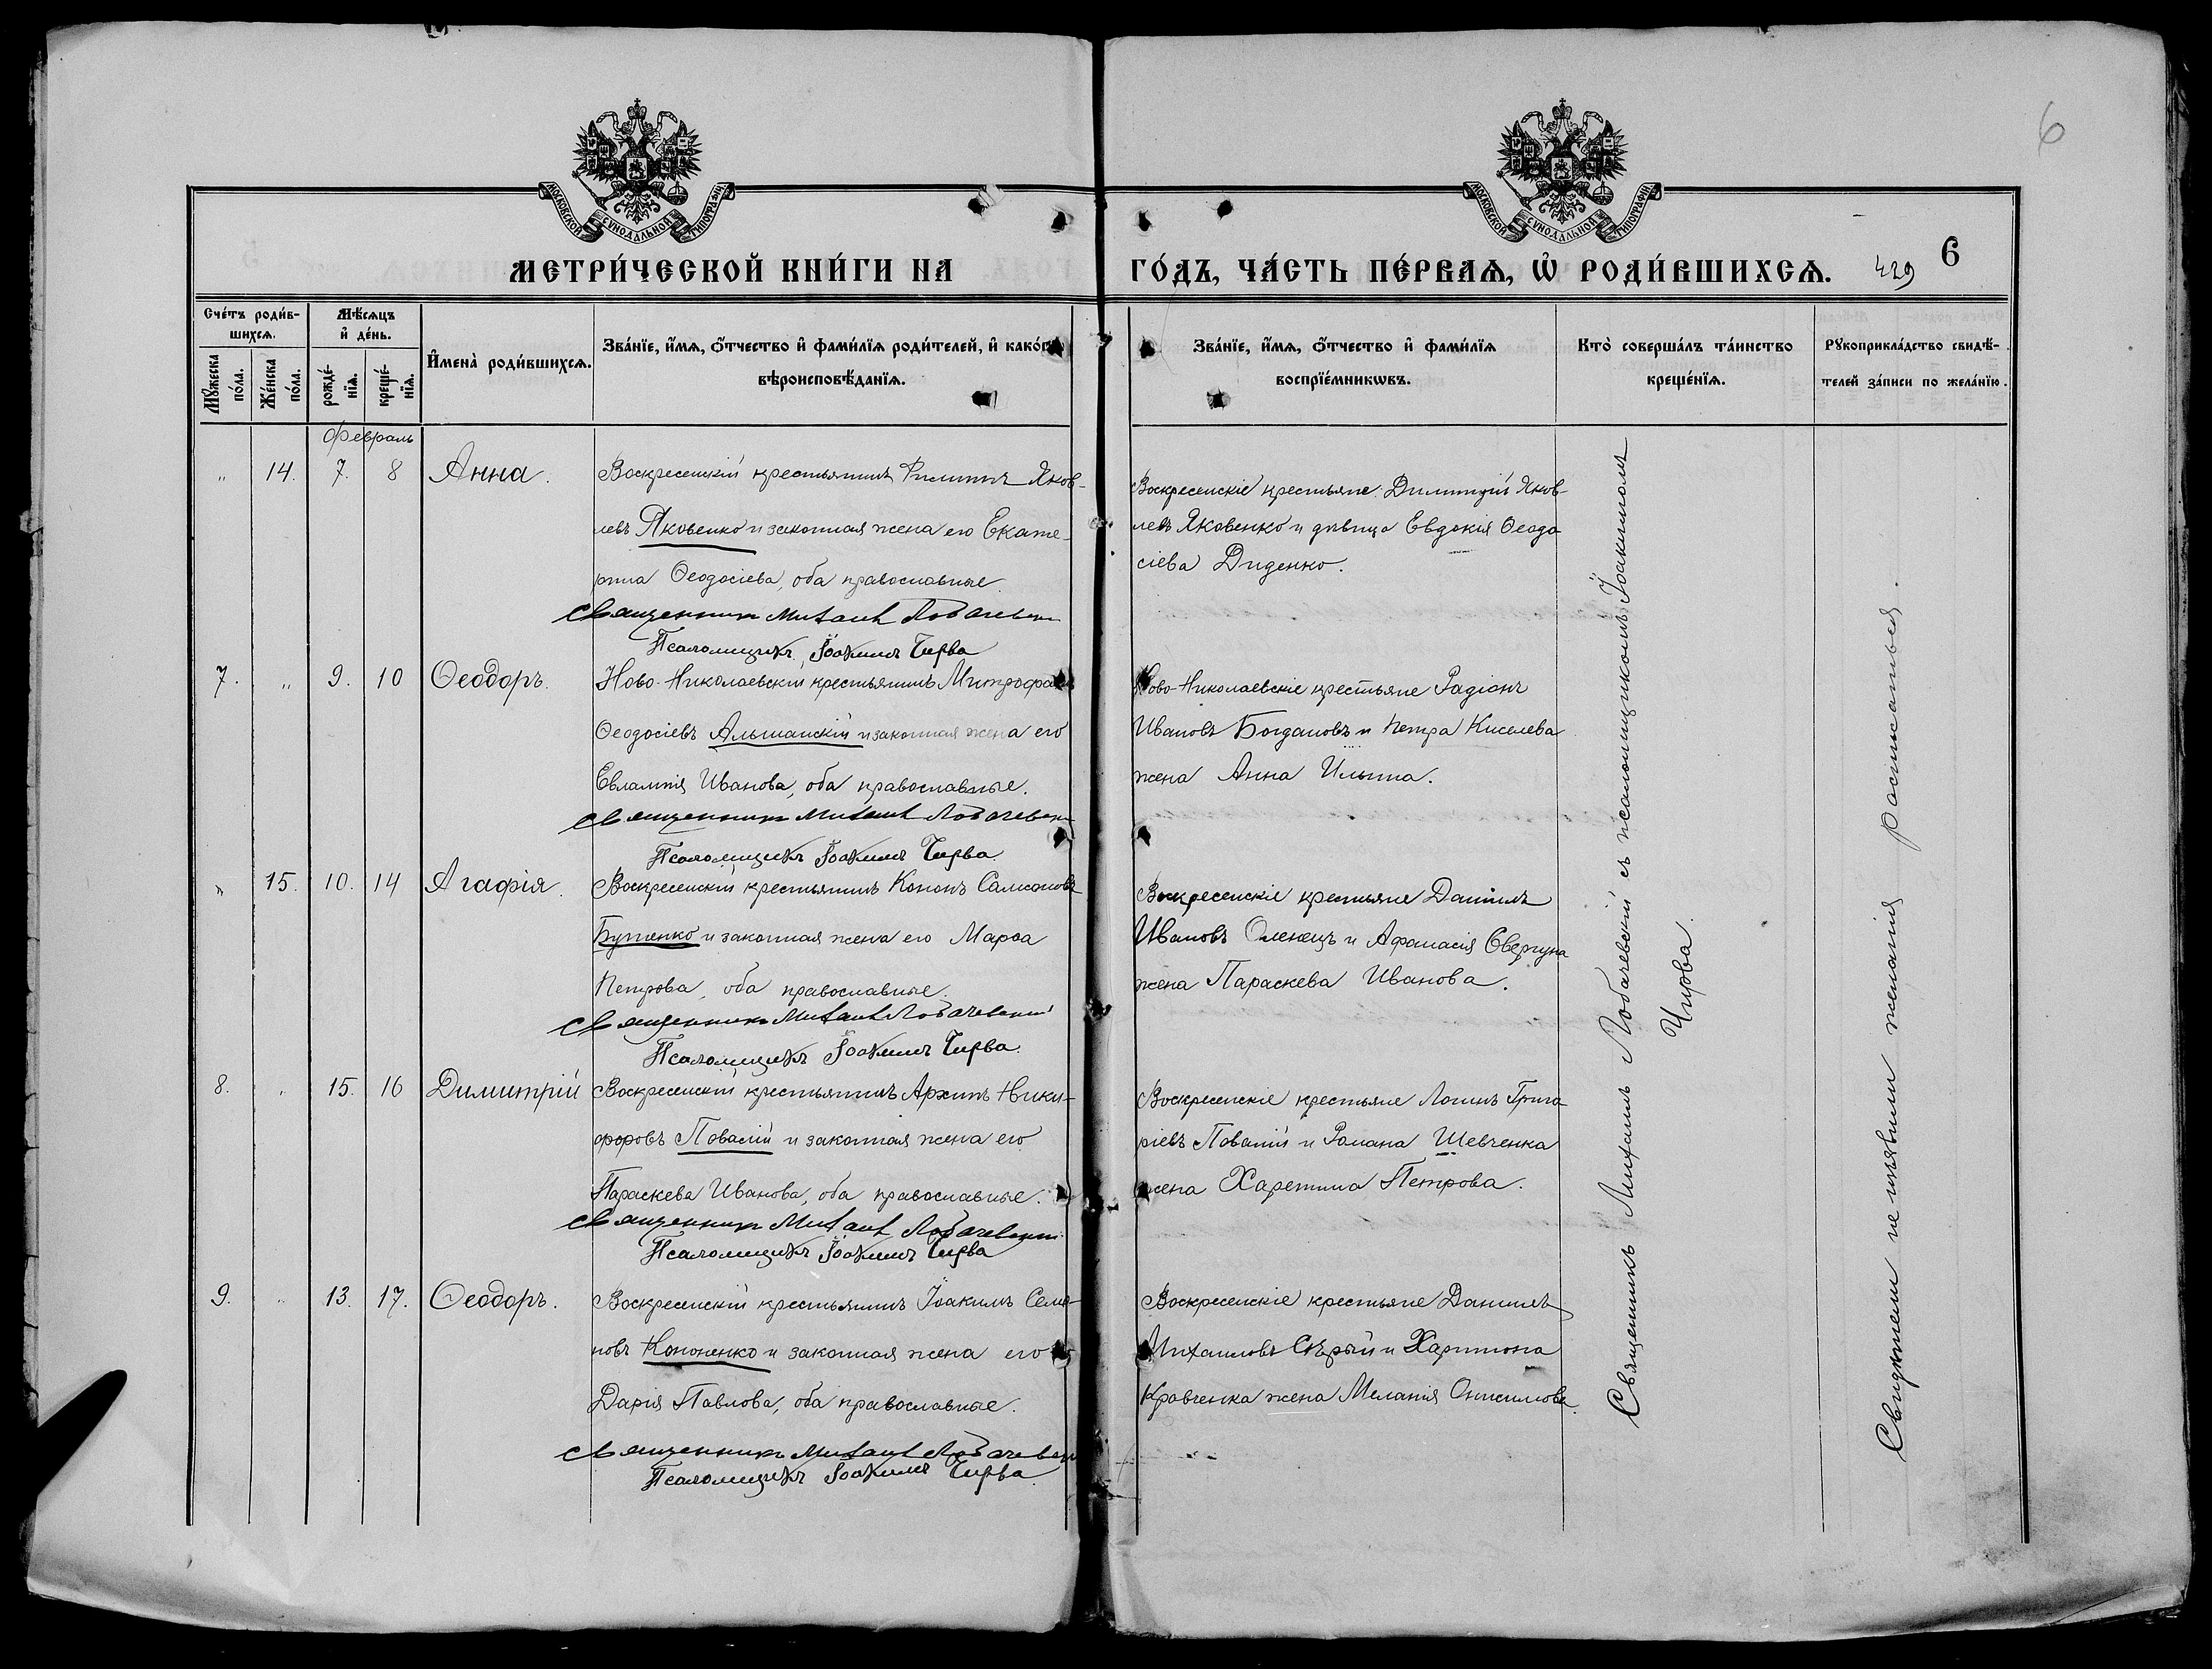 6
МОСКОВСКОЙ СУНОДАЛЬНОЙ ТИПОГРАФІИ
МОСКОВСКОЙ СУНОДАЛЬНОЙ ТИПОГРАФІИ
МЕТРИ́ЧЕСКОЙ КНИ́ГИ НА
ГО́ДЪ, ЧА́СТЬ ПЕ́РВАѦ, Ѡ҆ РОДИ́ВШИХСѦ.
429
6
Сче́тъ роди́в-
шихсѧ.
Мѣ́сѧцъ
и҆ де́нь.
Мꙋ́жеска
по́ла.
Же́нска
по́ла.
рожде́-
нїѧ.
креще́-
нїѧ.
И҆мена̀ роди́вшихсѧ.
Зва́нїе, и҆́мѧ, ѻ҆́тчество и҆ фами́лїѧ роди́телей, и҆ како́гѡ
вѣроисповѣ́данїѧ.
Зва́нїе, и҆́мѧ, ѻ҆́тчество и҆ фами́лїѧ
воспрїе́мникѡвъ.
Кто̀ соверша́лъ та́инство
креще́нїѧ.
Рꙋкоприкла́дство свидѣ́-
телей за́писи по жела́нїю.
Февраль
" 14. 7. 8 Анна.
Воскресенскій крестьянинъ Филиппъ Яков-
левъ Яковенко и законная жена его Екате-
рина Ѳеодосіева, оба православные.
Священникъ Михаилъ Лобачевскій
Псаломщикъ Іоакимъ Чирва
Воскресенскіе крестьяне: Димитрій Яков-
левъ Яковенко и дѣвица Евдокія Ѳеодо
сіева Диденко.
7. " 9. 10 Ѳеодоръ.
Ново-Николаевскій крестьянинъ Митрофанъ
Ѳеодосіевъ Альшанскій и законная жена его
Евлампія Иванова, оба православные.
Священникъ Михаилъ Лобачевскій
Псаломщикъ Іоакимъ Чирва.
Ново-Николаевскіе крестьяне Радіонъ
Ивановъ Богдановъ и Петра Киселева
жена Анна Ильина.
" 15. 10. 14 Агафія.
Воскресенскій крестьянинъ Кононъ Самсоновъ
Бутенко и законная жена его Марѳа
Петрова, оба православные.
Священникъ Михаилъ Лобачевскій
Псаломщикъ Іоакимъ Чирва.
Воскресенскіе крестьяне Даніилъ
Ивановъ Оленецъ и Афанасія Свергуна
жена Параскева Иванова.
8. " 15. 16 Димитрій
Воскресенскій крестьянинъ Архипъ Ники-
форовъ Повалій и законная жена его
Параскева Иванова, оба православные.
Священникъ Михаилъ Лобачевскій
Псаломщикъ Іоакимъ Чирва
Воскресенскіе крестьяне Логинъ Григо
ріевъ Повалій и Романа Шевченка
жена Харетина Петрова.
9. " 13. 17. Ѳеодоръ.
Воскресенскій крестьянинъ Іоакимъ Семе-
новъ Кононенко и законная жена его
Дарія Павлова, оба православные.
Священникъ Михаилъ Лобачевскій
Псаломщикъ Іоакимъ Чирва.
Воскресенскіе крестьяне Даніилъ
Михаиловъ Сѣрый и Харитона
Кравченка жена Меланія Онисимова.
Священникъ Михаилъ Лобачевскій съ псаломщикомъ Іоакимомъ
Чирва.
Свидѣтели не изъявили желанія росписаться.